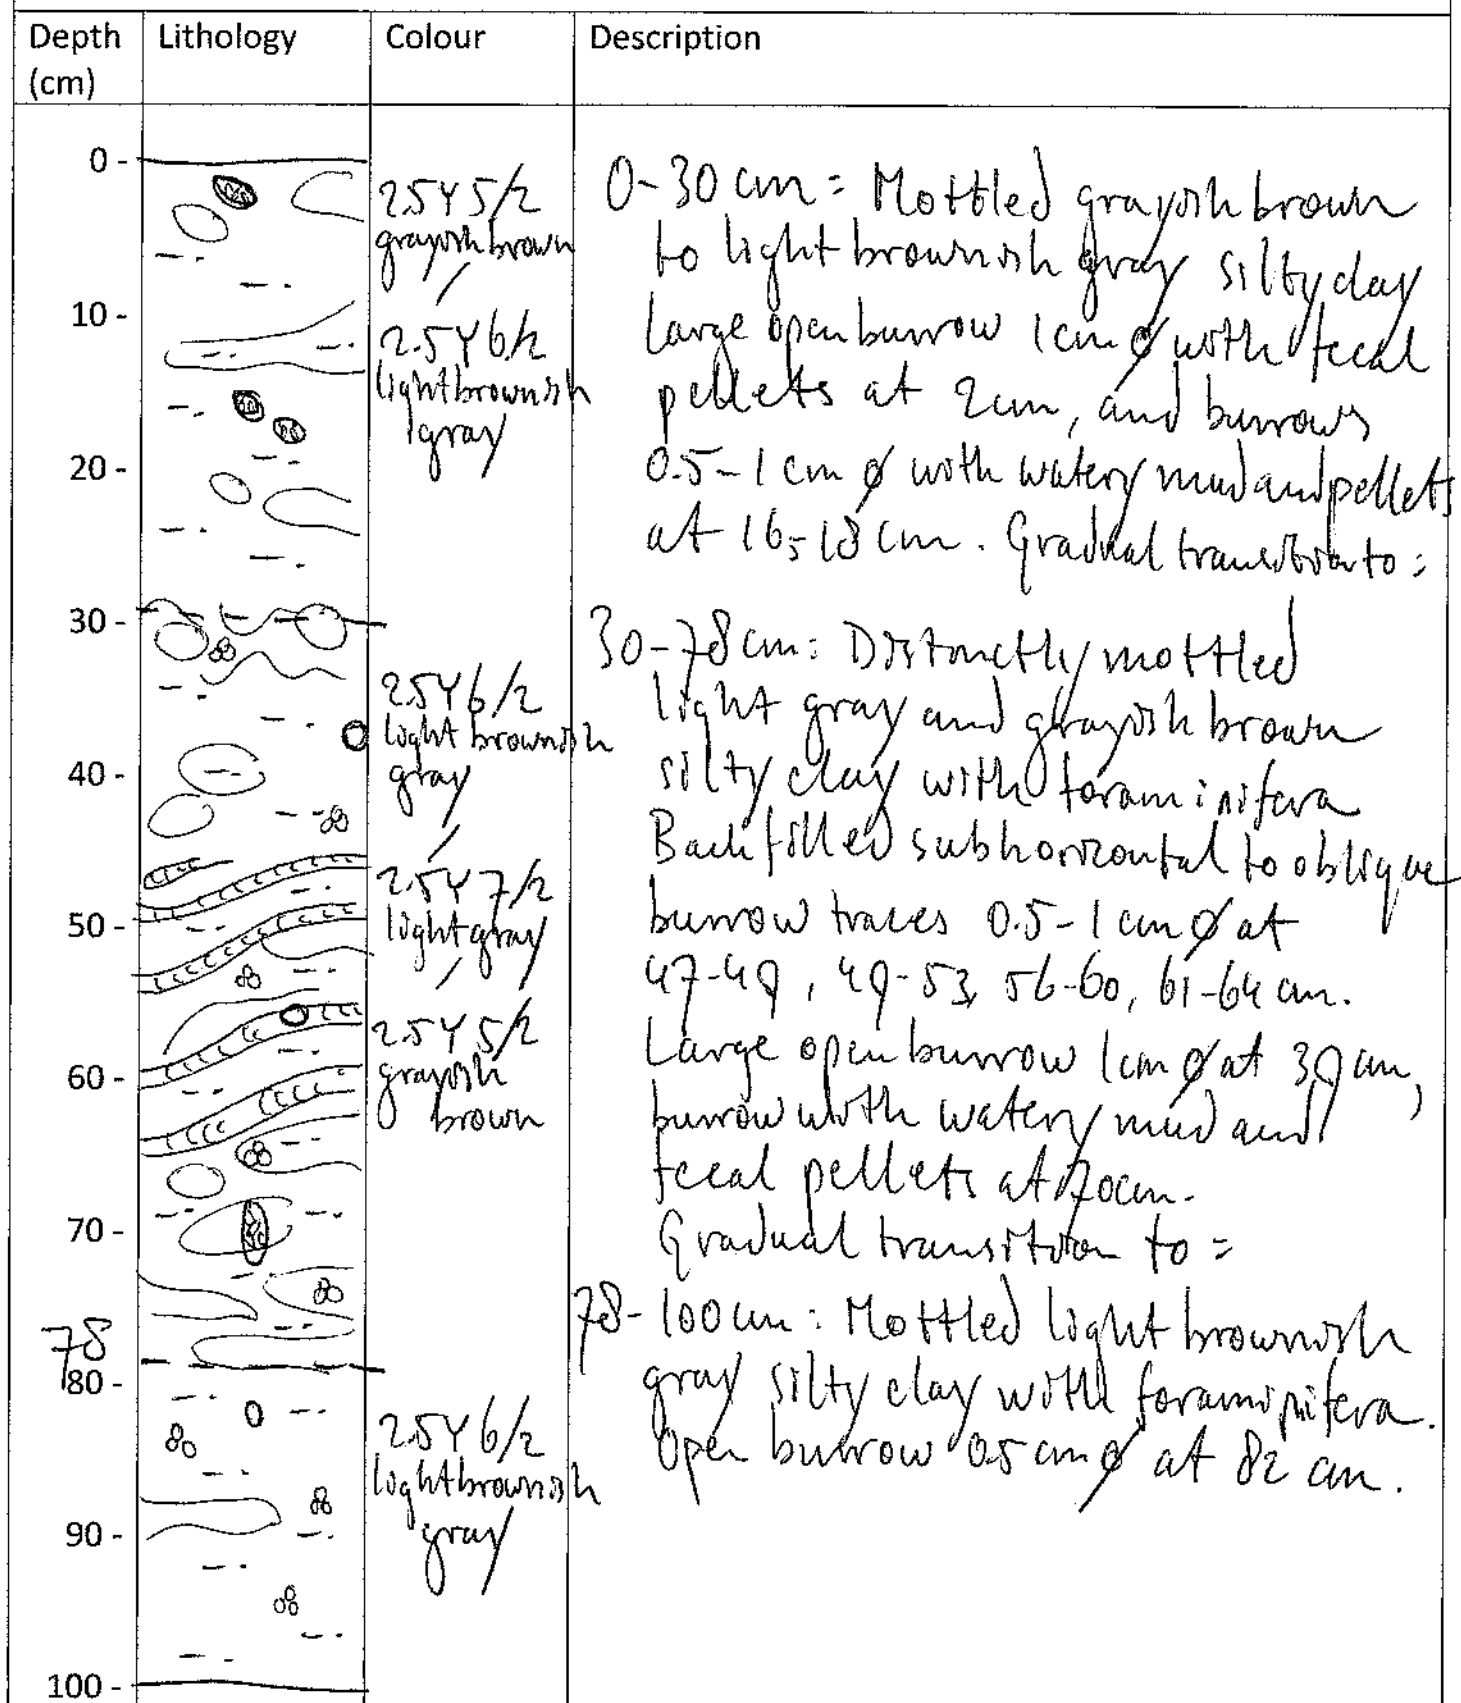 Depth
(cm)
Lithology
Colour
Description
0 -
10 -
20 -
30 -
40 -
50 -
60 -
70 -
78
80 -
90 -
100 -
2.5Y 5/2
grayish brown
/
2.5Y 6/2
light brownish
gray
2.5Y 6/2
light brownish
gray
/
2.5Y 7/2
light gray
/
2.5Y 5/2
grayish
brown
2.5Y 6/2
light brownish
gray
0-30 cm: Mottled grayish brown
to light brownish gray silty clay
Large open burrow 1cm ø with fecal
pellets at 2cm, and burrows
0.5-1 cm ø with watery mud and pellets
at 16-18 cm. Gradual transition to:
30-78 cm: Distinctly mottled
light gray and grayish brown
silty clay with foraminifera
Backfilled subhorizontal to oblique
burrow traces 0.5-1 cm ø at
47-49, 49-53, 56-60, 61-64 cm.
Large open burrow 1cm ø at 39 cm,
burrow with watery mud and
fecal pellets at 70cm.
Gradual transition to:
78-100 cm: Mottled light brownish
gray silty clay with foraminifera.
Open burrow 0.5 cm ø at 82 cm.